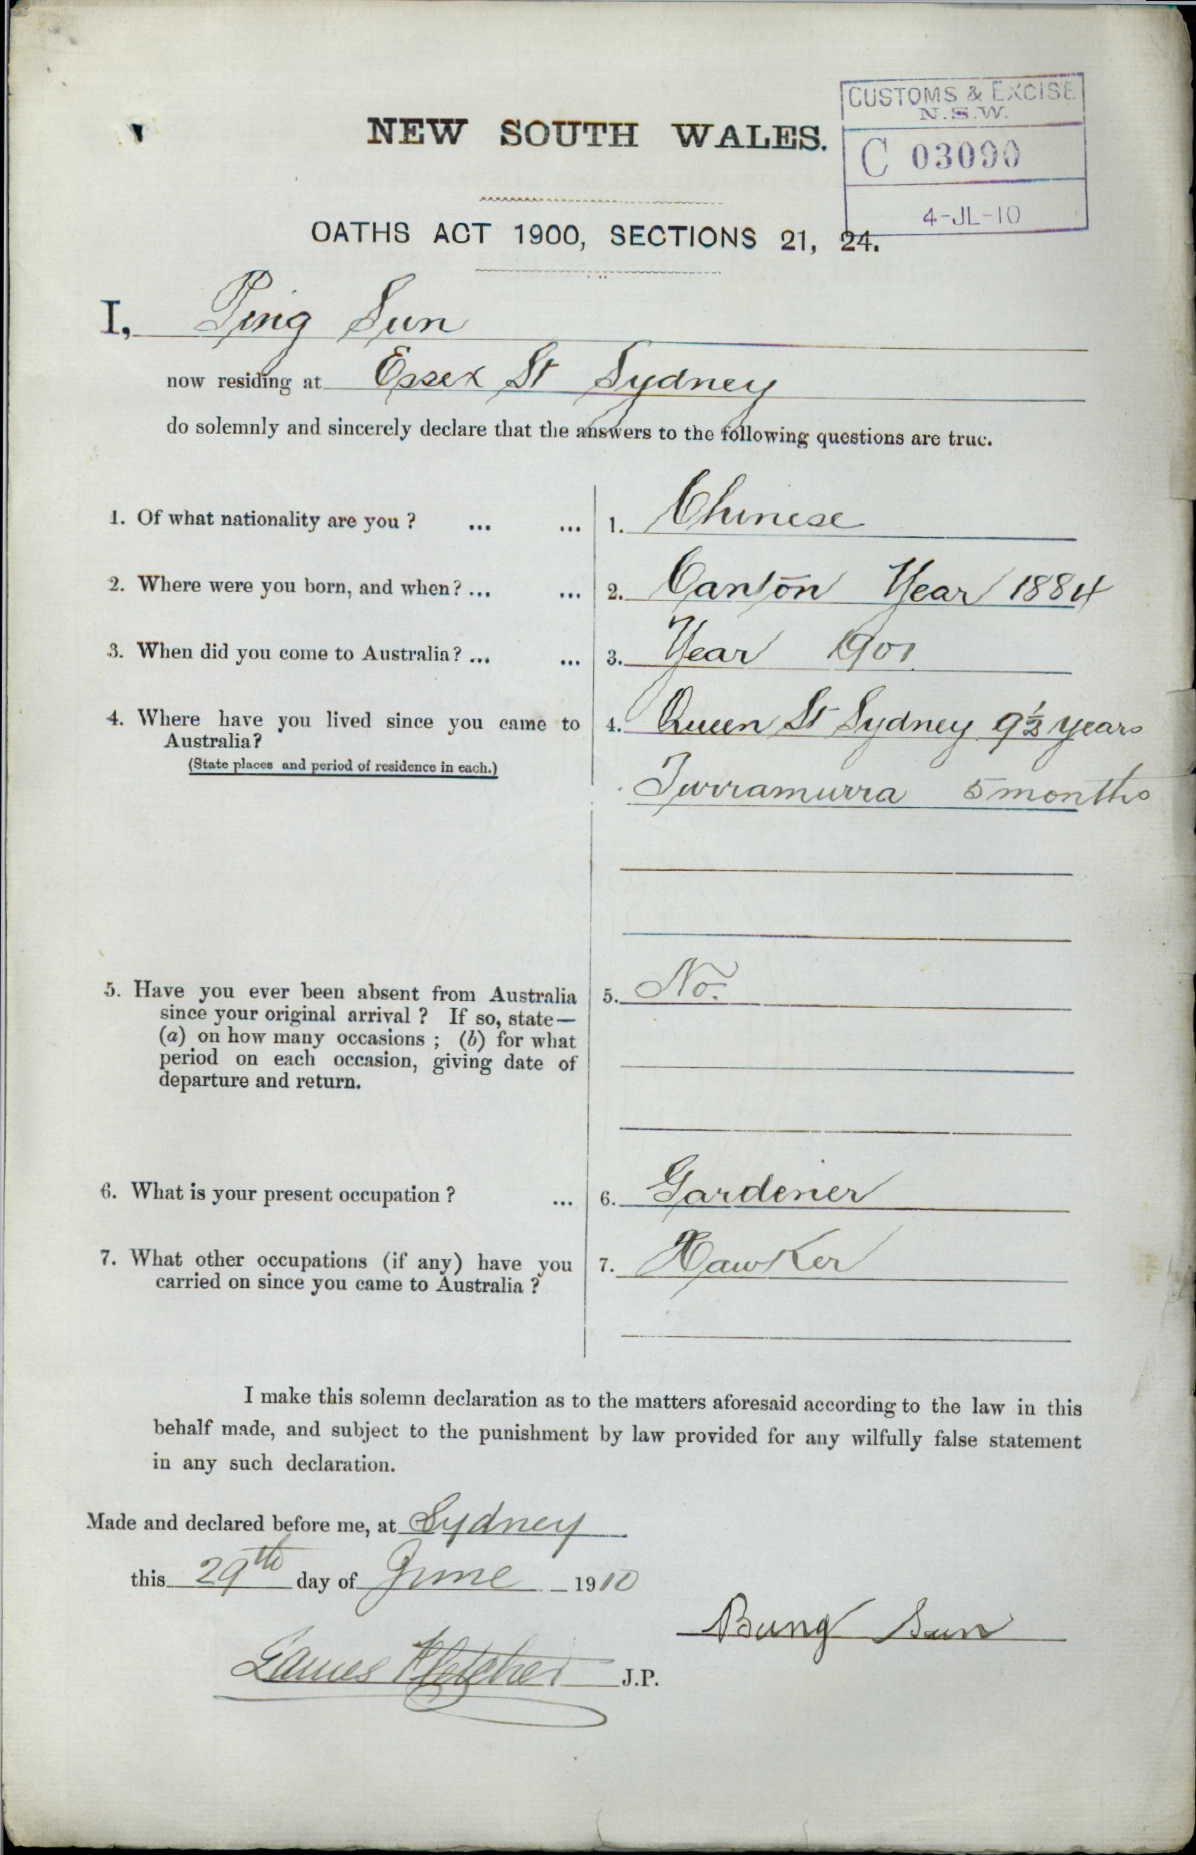 CUSTOMS & EXCISE
N.S.W.
C 03090
4-JL-10
NEW SOUTH WALES.
OATHS ACT 1900, SECTIONS 21, 24.
I, Ping Sun
now residing at Essex St Sydney
do solemnly and sincerely declare that the answers to the following questions are true.
1. Of what nationality are you ? ... ... 1. Chinese
2. Where were you born, and when? ... ... 2. Canton Year 1884
3. When did you come to Australia? ... ... 3. Year 1901
4. Where have you lived since you came to 4. Queen St Sydney 9½ years
Australia?
(State places and period of residence in each.)
Turramurra 5 months
5. Have you ever been absent from Australia 5. No.
since your original arrival ? If so, state—
(a) on how many occasions ; (b) for what
period on each occasion, giving date of
departure and return.
6. What is your present occupation ? ... 6. Gardener
7. What other occupations (if any) have you 7. Hawker
carried on since you came to Australia ?
I make this solemn declaration as to the matters aforesaid according to the law in this
behalf made, and subject to the punishment by law provided for any wilfully false statement
in any such declaration.
Made and declared before me, at Sydney
this 29th day of June 1910
Bung Sun
James Fletcher J.P.